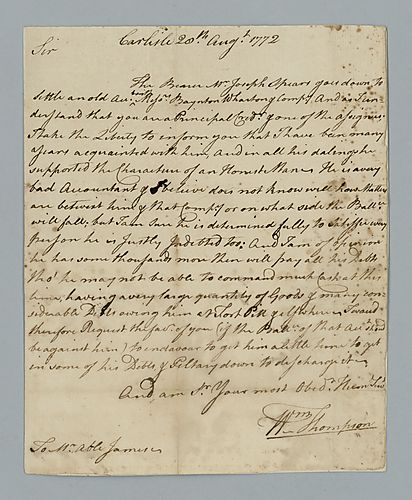 Carlisle 28th Augt. 1772
Sir
The Bearer Mr. Joseph Spears goes down to
settle an old Acct. with Messrs. Baynton Wharton & Compy. And as I un-
derstand that you are a Principal Credr. & one of the assignees
I take the Liberty to inform you that I have been many
years acquainted with him, and in all his dealings he
supported the Character of an Honest Man. He is a very
bad Accountant & I beleive does not know well how Matters
are betwixt him & that Compy. or on what side the Ballce.
will fall, but I am sure he is determined fully to satisfie every
person he is Justly Indebted too: And I am of opinion
he has some thousand more then will pay all his Debts
tho' he may not be able to command much Cash at this
time, having a very large quantity of Goods & many con-
siderable Debts owing him at Fort Pitt & elsewhere I would
therefore Request the favr. of you (if the Ballce. of that Acct. shod.
be against him) to endavour to get him a little time to get
in some of his Debts & Peltary down to discharge it.
And am Sr. Your most Obedt. Huml. Servt.
Wm. Thompson
To Mr. Able James